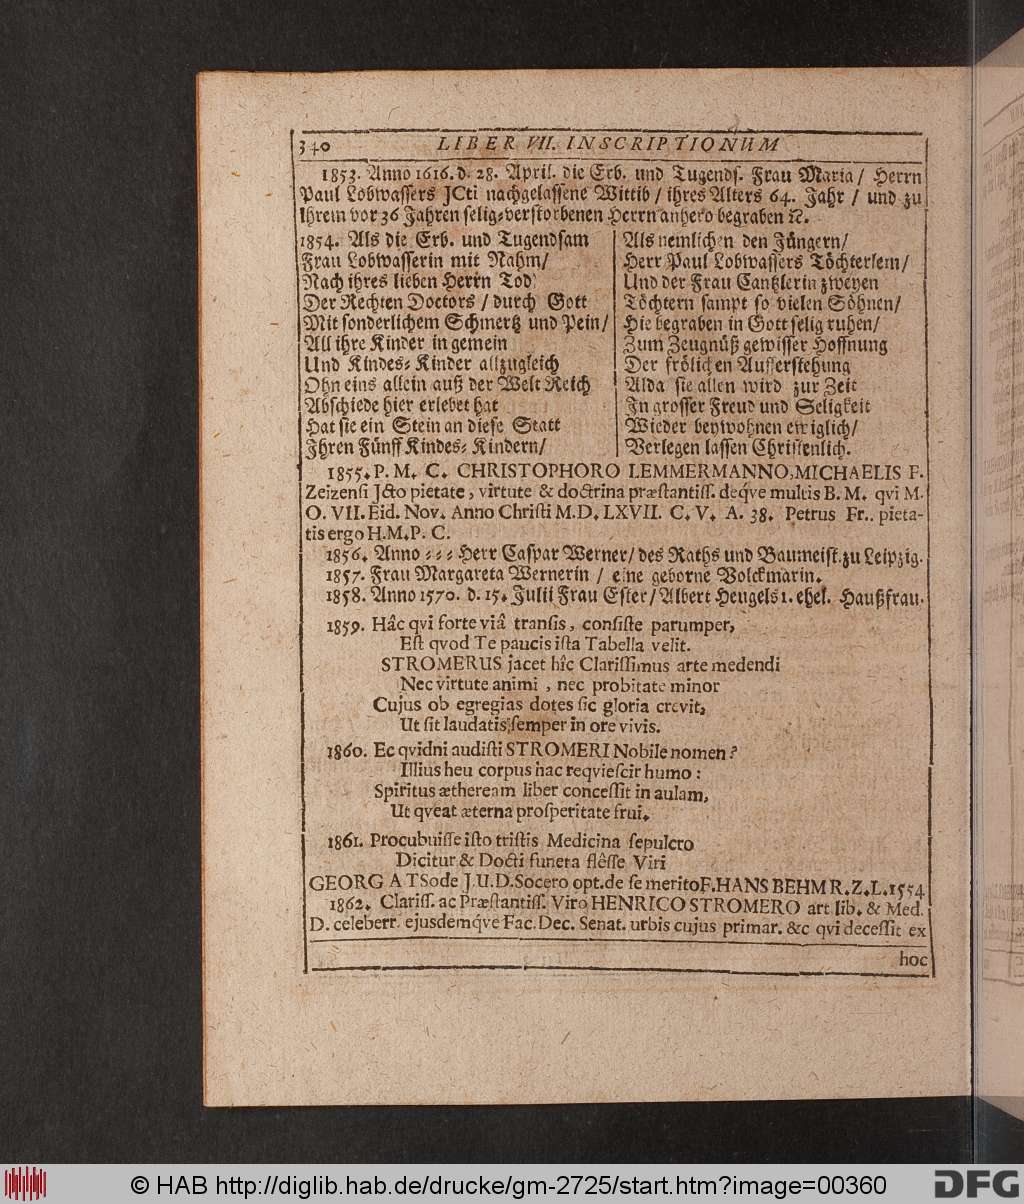 340 LIBER VII. INSCRIPTIONUM
1853. Anno 1616. d. 28. April. die Erb. und Tugends. Frau Maria / Herrn
Paul Lobwassers JCti nachgelassene Wittib / ihres Alters 64. Jahr / und zu
Ihrem vor 36 Jahren selig-verstorbenen Herrn anhero begraben ⁊c.
1854. Als die Erb. und Tugendsam
Frau Lobwasserin mit Nahm/
Nach ihres lieben Herrn Tod
Der Rechten Doctors / durch Gott
Mit sonderlichem Schmertz und Pein/
All ihre Kinder in gemein
Und Kindes-Kinder allzugleich
Ohn eins allein auß der Welt Reich
Abschiede hier erlebet hat
Hat sie ein Stein an diese Statt
Ihren Fünff Kindes-Kindern/
Als nemlichen den Jüngern/
Herr Paul Lobwassers Töchterlein/
Und der Frau Cantzlerin zweyen
Töchtern sampt so vielen Söhnen/
Hie begraben in Gott selig ruhen/
Zum Zeugnüß gewisser Hoffnung
Der frölichen Aufferstehung
Alda sie allen wird zur Zeit
In grosser Freud und Seligkeit
Wieder beywohnen ewiglich/
Verlegen lassen Christenlich.
1855. P. M. C. CHRISTOPHORO LEMMERMANNO, MICHAELIS F.
Zeizensi Jcto pietate, virtute & doctrina præstantiss. deq́ve multis B. M. qvi M.
O. VII. Eid. Nov. Anno Christi M.D. LXVII. C. V. A. 38. Petrus Fr.. pieta-
tis ergo H.M.P. C.
1856. Anno - - - Herr Caspar Werner/ des Raths und Baumeist. zu Leipzig.
1857. Frau Margareta Wernerin / eine geborne Volckmarin.
1858. Anno 1570. d. 15. Julii Frau Ester/ Albert Heugels 1. ehel. Haußfrau.
1859. Hâc qvi forte viâ transis, consiste parumper,
Est qvod Te paucis ista Tabella velit.
STROMERUS jacet hîc Clarissimus arte medendi
Nec virtute animi, nec probitate minor
Cujus ob egregias dotes sic gloria crevit,
Ut sit laudatis semper in ore vivis.
1860. Ec qvidni audisti STROMERI Nobile nomen?
Illius heu corpus hac reqviescir humo:
Spiritus ætheream liber concessit in aulam,
Ut qveat æterna prosperitate frui.
1861. Procubuisse isto tristis Medicina sepulcro
Dicitur & Docti funera flêsse Viri
GEORG A TSode J.U.D. Socero opt. de se merito F. HANS BEHM R. Z. L. 1554
1862. Clariss. ac Præstantiss. Viro HENRICO STROMERO art. lib. & Med.
D. celeberr. ejusdemq́ve Fac. Dec. Senat. urbis cujus primar. &c qvi decessit ex
hoc
© HAB http://diglib.hab.de/drucke/gm-2725/start.htm?image=00360
DFG